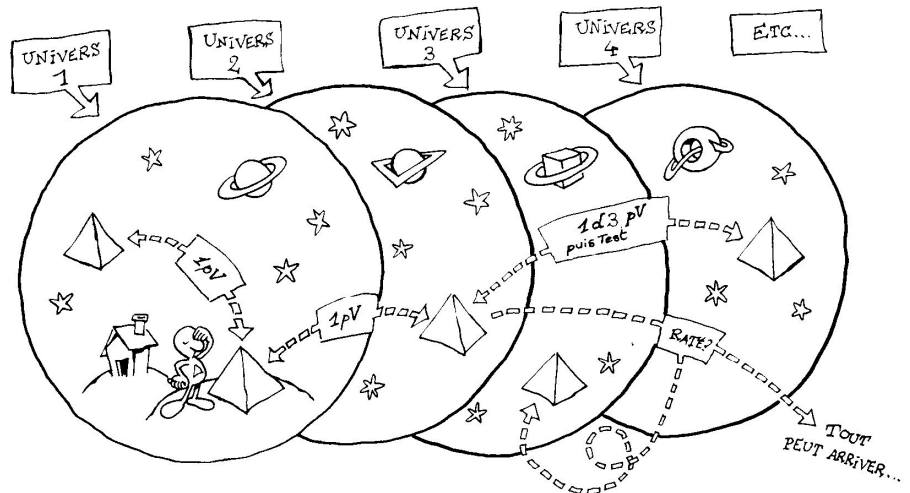 UNIVERS
1
UNIVERS
2
UNIVERS
3
UNIVERS
4
ETC...
1d3 pV
puis Test
1pV
1pV
RATÉ?
TOUT
PEUT ARRIVER...